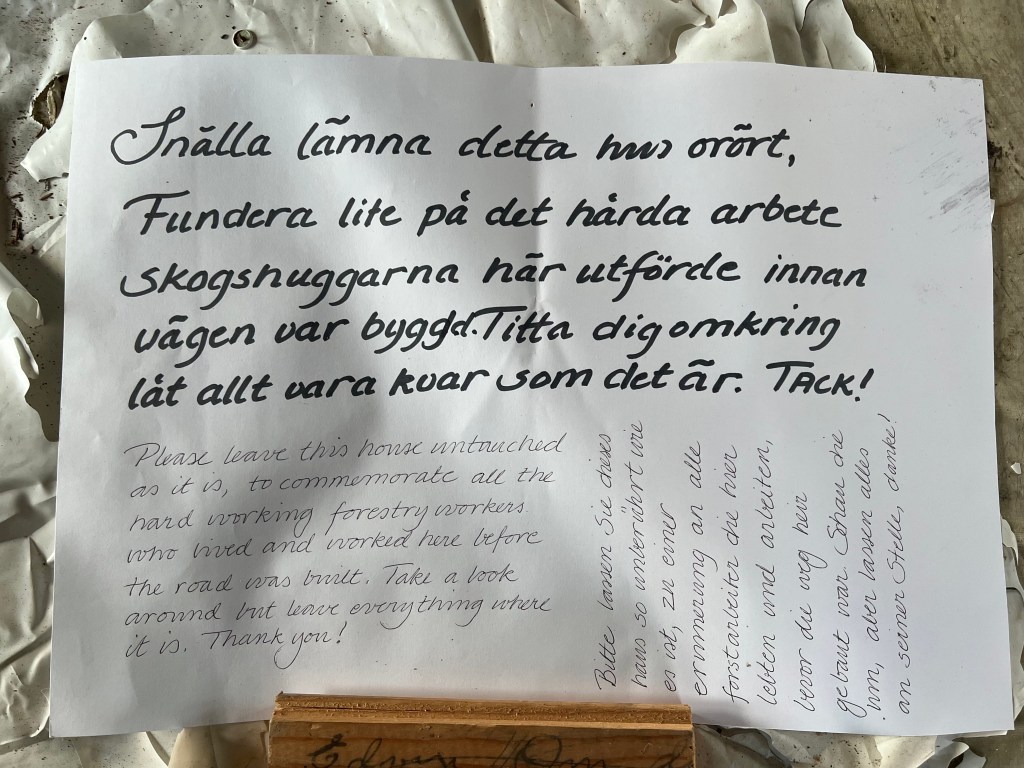 Snälla lämna detta hus orört,
Fundera lite på det hårda arbete
skogshuggarna här utförde innan
vägen var byggd. Titta dig omkring
låt allt vara kvar som det är. TACK!
Please leave this house untouched
as it is, to commemorate all the
hard working forestry workers
who lived and worked here before
the road was built. Take a look
around but leave everything where
it is. Thank you!
Bitte lassen Sie dieses
haus so unberührt wie
es ist, zu einer
erinnerung an alle
forstarbeiter die hier
lebten und arbeiten,
bevor die weg heir
gebaut war. Schau die
um, aber lassen alles
an seiner Stelle, danke!